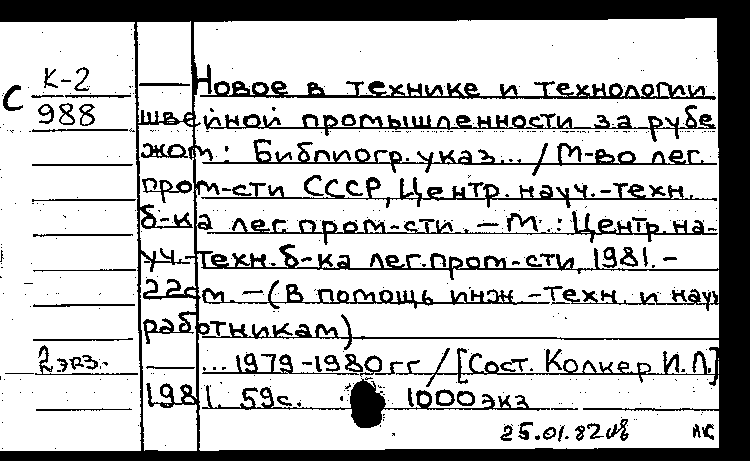 К-2
С 988
Новое в технике и технологии
швейной промышленности за рубе
жом: Библиогр. указ... / М-во лег.
пром-сти СССР, Центр. науч.-техн.
б-ка лег. пром-сти. – М.: Центр. на-
уч.-техн. б-ка лег. пром-сти, 1981. –
22см. – (В помощь инж.-техн. и науч
работникам)
2 экз.
... 1979-1980 гг / [Сост. Колкер И. Л.]
1981. 59с. 1000 экз
25.01.82